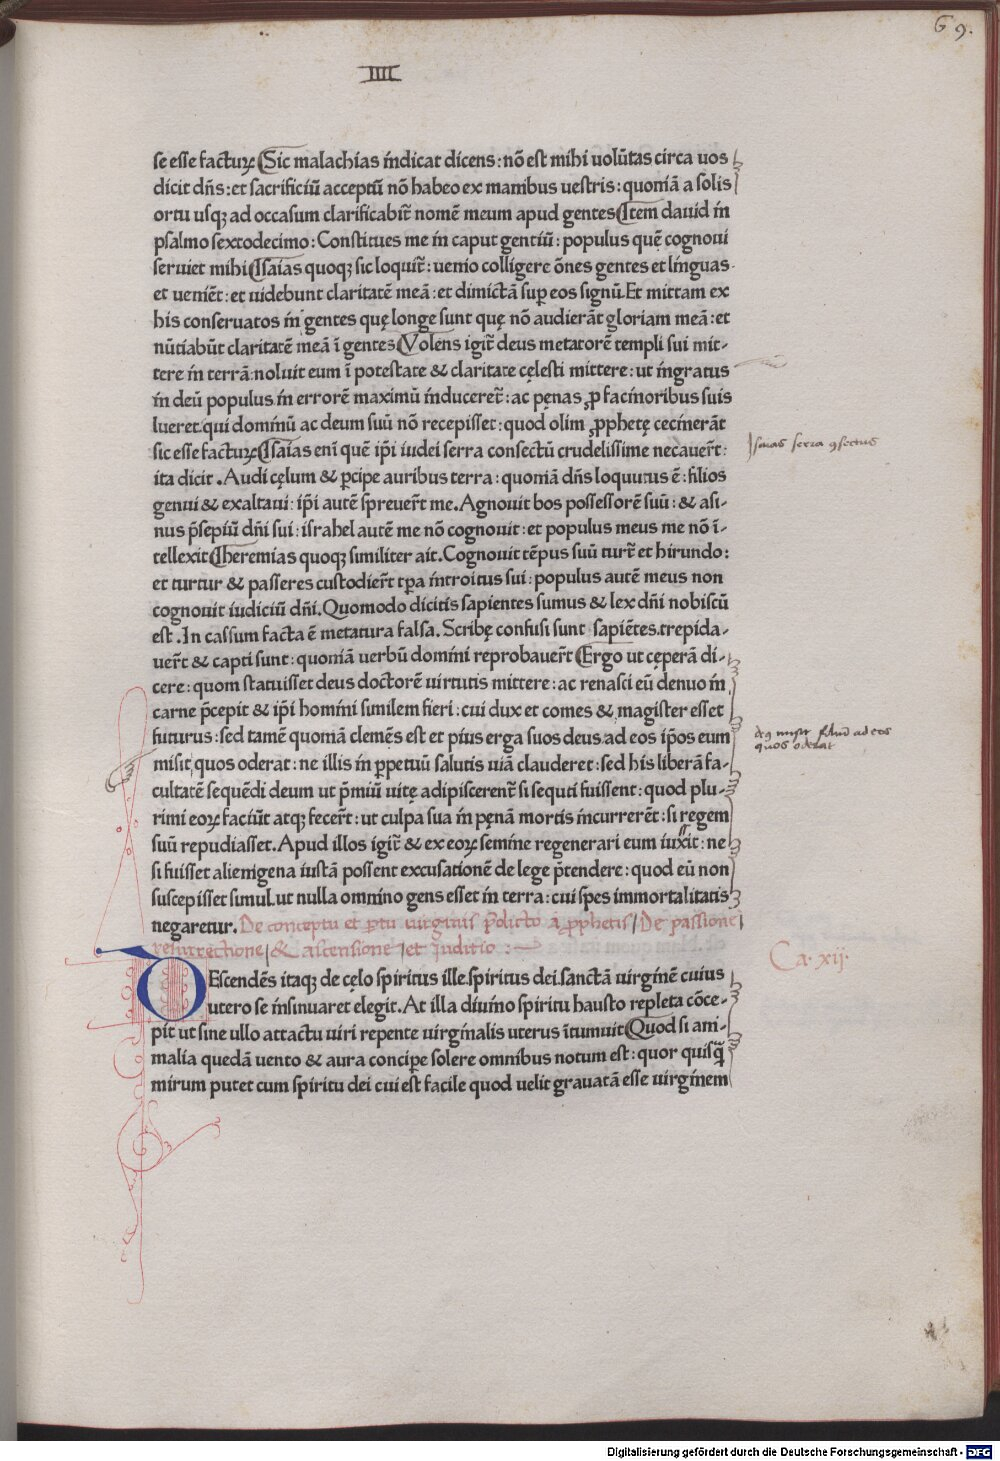 69.
IIII
se esse facturꝫ Sic malachias indicat dicens: nō est mihi uolūtas circa uos
dicit dn̄s: et sacrificiū acceptū nō habeo ex manibus uestris: quoniā a solis
ortu usqꝫ ad occasum clarificabit̄ nomē meum apud gentes Item dauid in
psalmo sextodecimo: Constitues me in caput gentiū: populus quē cognoui
seruiet mihi Isaias quoqꝫ sic loquit̄: uenio colligere ōnes gentes et linguas.
et ueniēt: et uidebunt claritatē meā: et dimictā suꝑ eos signū. Et mittam ex
his conseruatos in gentes quę longe sunt quę nō audierāt gloriam meā: et
nūtiabūt claritatē meā ī gentes Volens igit̄ deus metatorē templi sui mit-
tere in terrā: noluit eum ī potestate & claritate cęlesti mittere: ut ingratus
in deū populus in errorē maximū induceret̄: ac pęnas ꝓ facinoribus suis
lueret. qui dominū ac deum suū nō recepisset: quod olim ꝓphetę cecinerāt
sic esse facturꝫ Isaias eni quē ip̄i iudei serra consectū crudelissime necauer̄t:
Isaias serra ꝯsectus
ita dicit. Audi cęlum & ꝑcipe auribus terra: quoniā dn̄s loquutus ē: filios
genui & exaltaui: ip̄i autē spreuer̄t me. Agnouit bos possessorē suū: & asi-
nus p̄sepiū dn̄i sui: israhel autē me nō cognouit: et populus meus me nō ī-
tellexit Iheremias quoqꝫ similiter ait. Cognouit tēpus suū turt̄ et hirundo:
et turtur & passeres custodier̄t tꝑa introitus sui: populus autē meus non
cognouit iudiciū dn̄i. Quomodo dicitis sapientes sumus & lex dn̄i nobiscū
est. In cassum facta ē metatura falsa. Scribę confusi sunt sapiētes. trepida-
uer̄t & capti sunt: quoniā uerbū domini reprobauer̄t Ergo ut cęperā di-
cere: quom statuisset deus doctorē uirtutis mittere: ac renasci eū denuo in
carne p̄cepit & ip̄i homini similem fieri: cui dux et comes & magister esset
futurus: sed tamē quoniā clemēs est et pius erga suos deus. ad eos ip̄os eum
deꝯ misit filiū ad eos
quos oderat
misit, quos oderat: ne illis in ꝑpetuū salutis uiā clauderet: sed his liberā fa-
cultatē sequēdi deum ut p̄miū uitę adipiscerent̄ si sequti fuissent: quod plu-
rimi eorꝫ faciūt atqꝫ fecer̄t: ut culpa sua in pęnā mortis incurrerēt: si regem
suū repudiasset. Apud illos igit̄ & ex eorꝫ semine regenerari eum iuxit: ne
ss
si fuisset alienigena iustā possent excusationē de lege p̄tendere: quod eū non
suscepisset simul. ut nulla omnino gens esset in terra: cui spes immortalitatis
negaretur. De conceptu et ꝑtu uirginis p̄dicto a ꝓphetis / De passione
resurrectione / & ascensione / et Juditio :-
Ca. xij.
DEscendēs itaqꝫ de cęlo spiritus ille. spiritus dei. sanctā uirginē cuius
utero se insinuaret elegit. At illa diuino spiritu hausto repleta cōce-
pit ut sine ullo attactu uiri repente uirginalis uterus ītumuit Quod si ani-
malia quedā uento & aura conciꝑe solere omnibus notum est: quor quisq̄
mirum putet cum spiritu dei cui est facile quod uelit grauatā esse uirginem
Digitalisierung gefördert durch die Deutsche Forschungsgemeinschaft - DFG